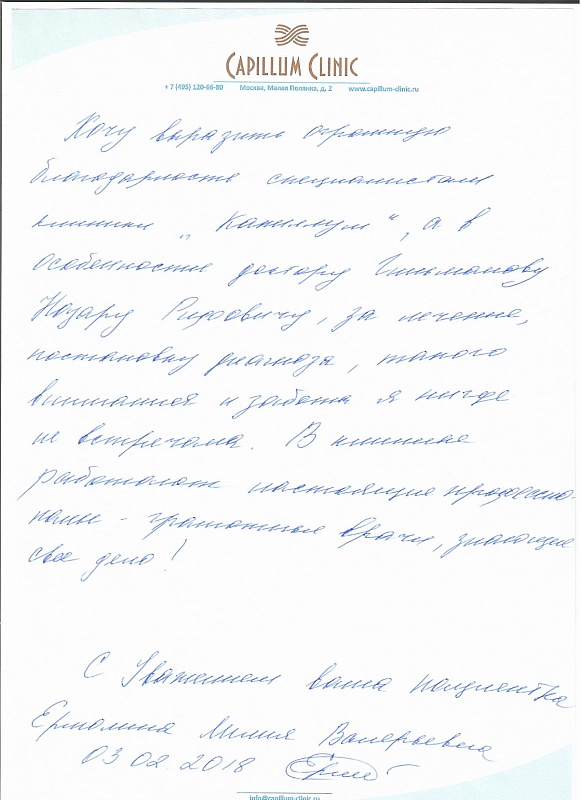 CAPILLUM CLINIC
+ 7 (495) 120-66-80 Москва, Малая Полянка, д. 2 www.capillum-clinic.ru
Хочу выразить огромную
благодарность специалистам
клиники „Капиллум“, а в
особенности доктору
Назару Рифовичу, за лечение,
постановку диагноза, такого
внимания и забота я нигде
не встречала. В клинике
работают настоящие професси-
налы - грамотные врачи, знающие
свое дело!
С Уважением ваша пациентка
Ермолина Лилия Валерьевна
03 02. 2018
info@capillum-clinic.ru